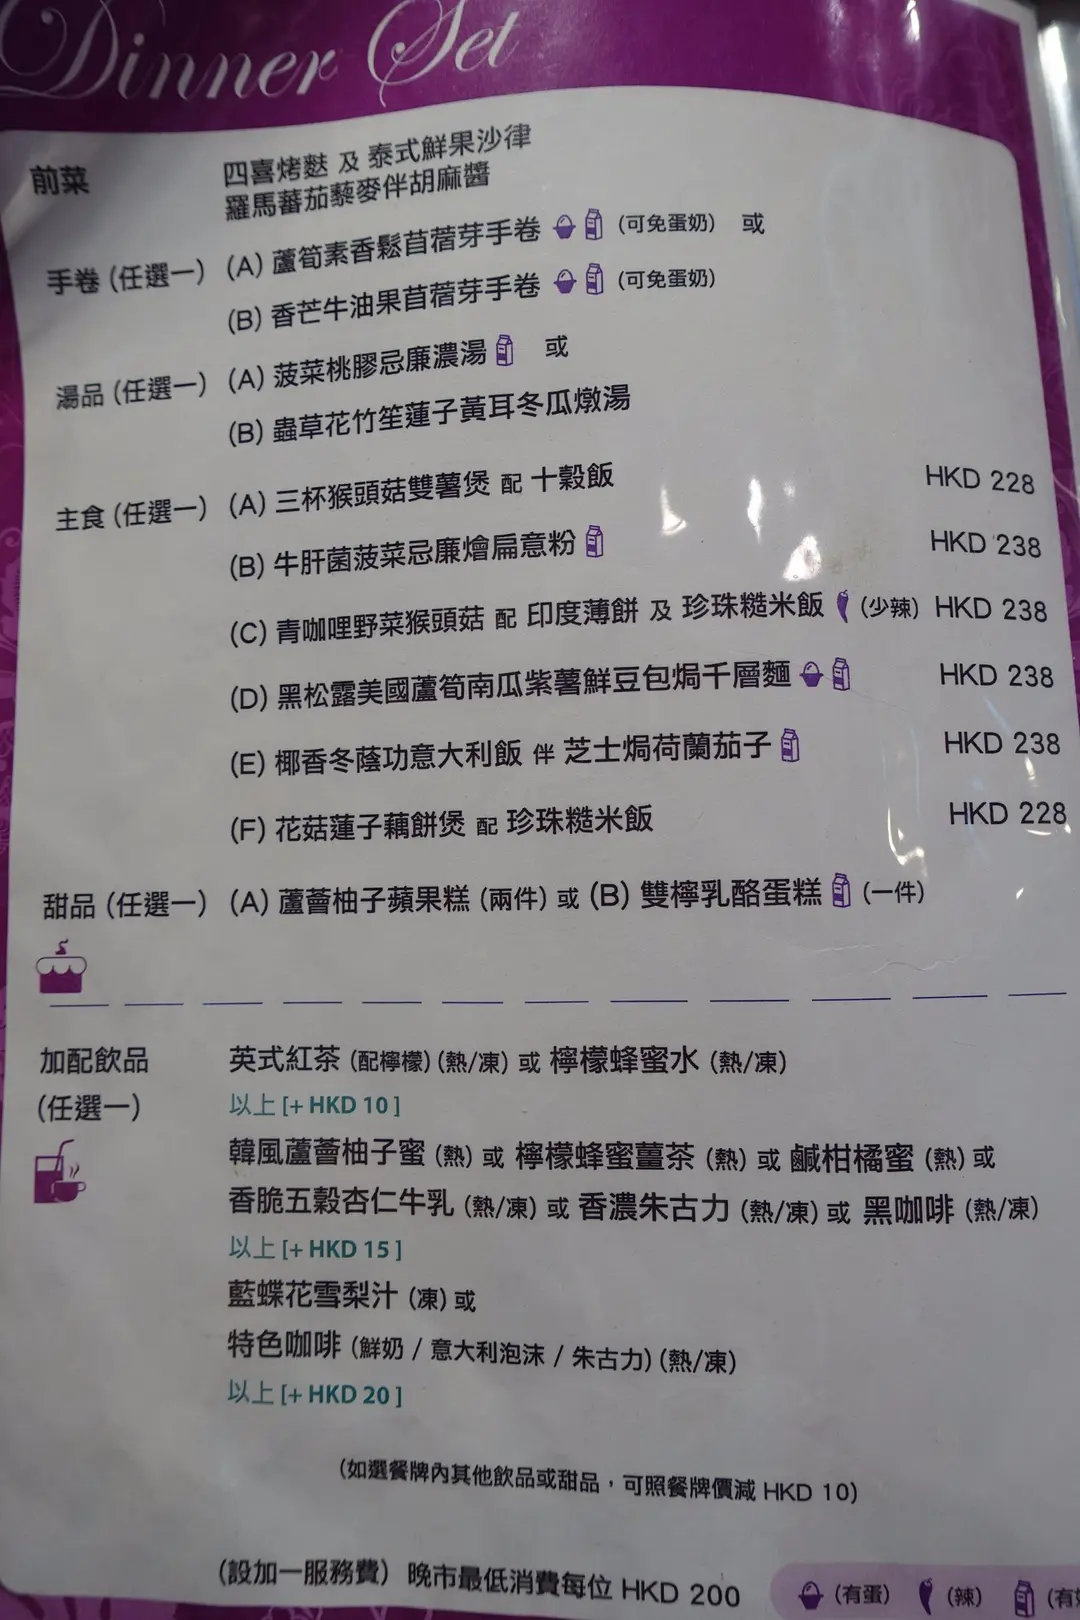 Dinner Set
前菜 四喜烤麩 及 泰式鮮果沙律
羅馬蕃茄藜麥伴胡麻醬
手卷 (任選一) (A) 蘆筍素香鬆苜蓿芽手卷 (可免蛋奶) 或
(B) 香芒牛油果苜蓿芽手卷 (可免蛋奶)
湯品 (任選一) (A) 菠菜桃膠忌廉濃湯 或
(B) 蟲草花竹笙蓮子黃耳冬瓜燉湯
主食 (任選一) (A) 三杯猴頭菇雙薯煲 配 十穀飯 HKD 228
(B) 牛肝菌菠菜忌廉燴扁意粉 HKD 238
(C) 青咖哩野菜猴頭菇 配 印度薄餅 及 珍珠糙米飯 (少辣) HKD 238
(D) 黑松露美國蘆筍南瓜紫薯鮮豆包焗千層麵 HKD 238
(E) 椰香冬蔭功意大利飯 伴 芝士焗荷蘭茄子 HKD 238
(F) 花菇蓮子藕餅煲 配 珍珠糙米飯 HKD 228
甜品 (任選一) (A) 蘆薈柚子蘋果糕 (兩件) 或 (B) 雙檸乳酪蛋糕 (一件)
加配飲品 英式紅茶 (配檸檬) (熱/凍) 或 檸檬蜂蜜水 (熱/凍)
(任選一) 以上 [+ HKD 10 ]
韓風蘆薈柚子蜜 (熱) 或 檸檬蜂蜜薑茶 (熱) 或 鹹柑橘蜜 (熱) 或
香脆五穀杏仁牛乳 (熱/凍) 或 香濃朱古力 (熱/凍) 或 黑咖啡 (熱/凍)
以上 [+ HKD 15 ]
藍蝶花雪梨汁 (凍) 或
特色咖啡 (鮮奶 / 意大利泡沫 / 朱古力) (熱/凍)
以上 [+ HKD 20 ]
(如選餐牌內其他飲品或甜品，可照餐牌價減 HKD 10)
(設加一服務費) 晚市最低消費每位 HKD 200
(有蛋) (辣) (有